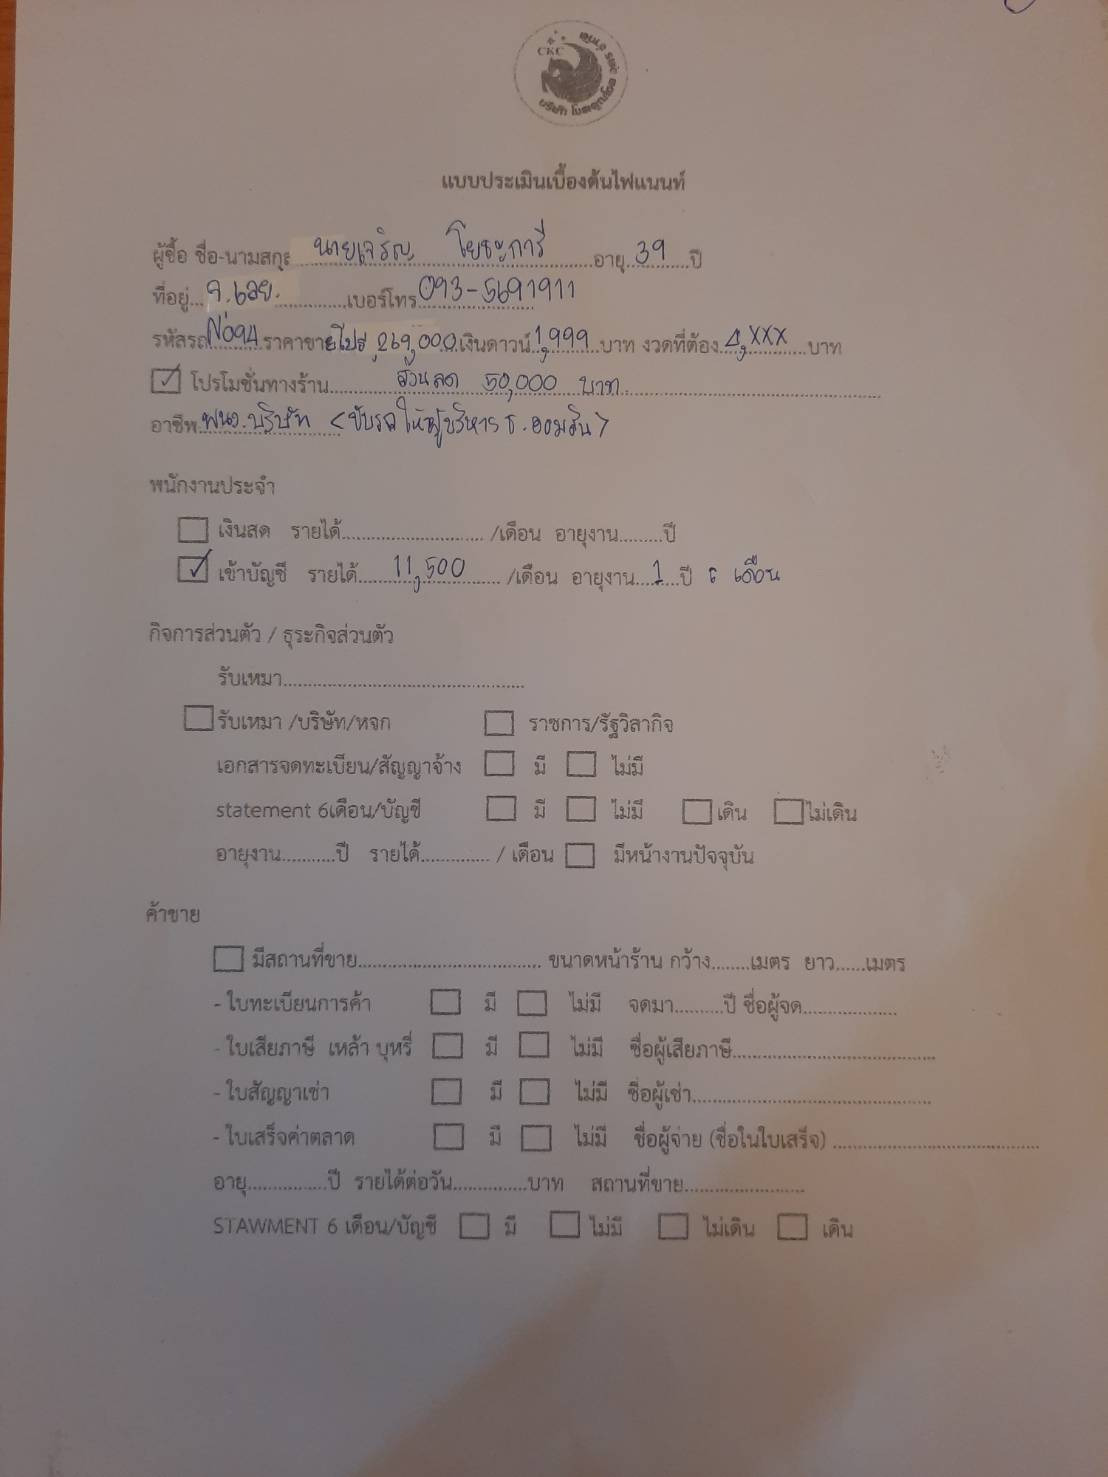 CKC
แบบประเมินเบื้องต้นไฟแนนท์
ผู้ซื้อ ชื่อ-นามสกุล นายเจริญ โยธะการี อายุ 39 ปี
ที่อยู่ จ.เลย. เบอร์โทร 093-5691911
รหัสรถ N094 ราคาขายโปร 269,000 เงินดาวน์ 1,999 บาท งวดที่ต้อง 4,xxx บาท
โปรโมชั่นทางร้าน ส่วนลด 50,000 บาท
อาชีพ พนง.บริษัท <ขับรถให้ผู้บริหาร ธ.ออมสิน>
พนักงานประจำ
เงินสด รายได้ /เดือน อายุงาน ปี
เข้าบัญชี รายได้ 11,500 /เดือน อายุงาน 1 ปี เดือน
กิจการส่วนตัว / ธุระกิจส่วนตัว
รับเหมา
รับเหมา /บริษัท/หจก ราชการ/รัฐวิสากิจ
เอกสารจดทะเบียน/สัญญาจ้าง มี ไม่มี
statement 6เดือน/บัญชี มี ไม่มี เดิน ไม่เดิน
อายุงาน ปี รายได้ / เดือน มีหน้างานปัจจุบัน
ค้าขาย
มีสถานที่ขาย ขนาดหน้าร้าน กว้าง เมตร ยาว เมตร
- ใบทะเบียนการค้า มี ไม่มี จดมา ปี ชื่อผู้จด
- ใบเสียภาษี เหล้า บุหรี่ มี ไม่มี ชื่อผู้เสียภาษี
- ใบสัญญาเช่า มี ไม่มี ชื่อผู้เช่า
- ใบเสร็จค่าตลาด มี ไม่มี ชื่อผู้จ่าย (ชื่อในใบเสร็จ)
อายุ ปี รายได้ต่อวัน บาท สถานที่ขาย
STAWMENT 6 เดือน/บัญชี มี ไม่มี ไม่เดิน เดิน